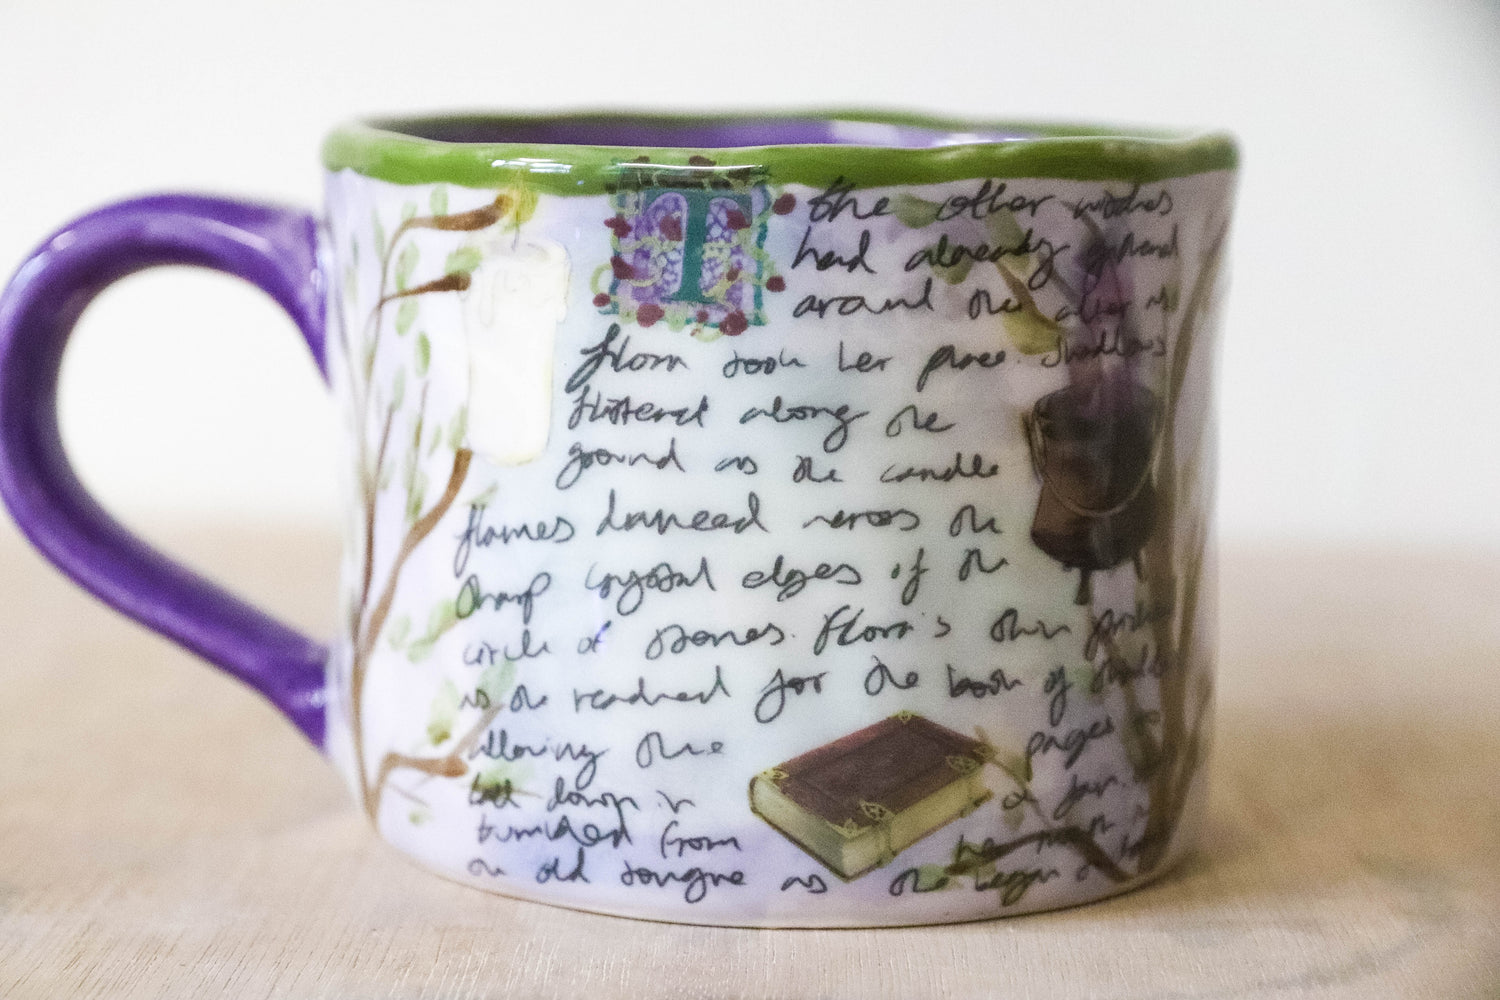 T the other witches
had already gathered
around the altar as
Flora took her place. Shadows
flittered along the
ground as the candle
flames danced across the
sharp crystal edges of the
circle of stones. Flora's skin
as she reached for the book of
allowing the pages to
fall down in a
tumbled from
an old tongue as she began